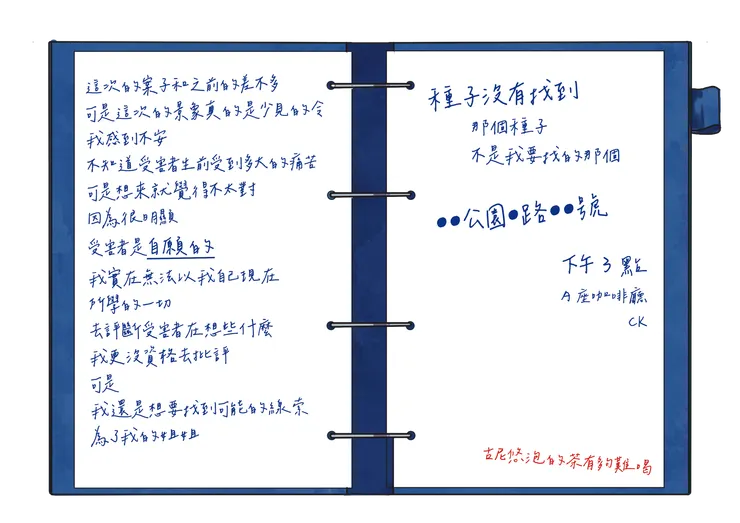 這次的案子和之前的差不多
可是這次的景象真的是少見的令
我感到不安
不知道受害者生前受到多大的痛苦
可是想來就覺得不太對
因為很明顯
受害者是自願的
我實在無法以我自己現在
所學的一切
去評斷受害者在想些什麼
我更沒資格去批評
可是
我還是想要找到可能的線索
為了我的姐姐
種子沒有找到
那個種子
不是我要找的那個
●●公園●路●●號
下午3點
A座咖啡廳
CK
古尼悠泡的茶有夠難喝